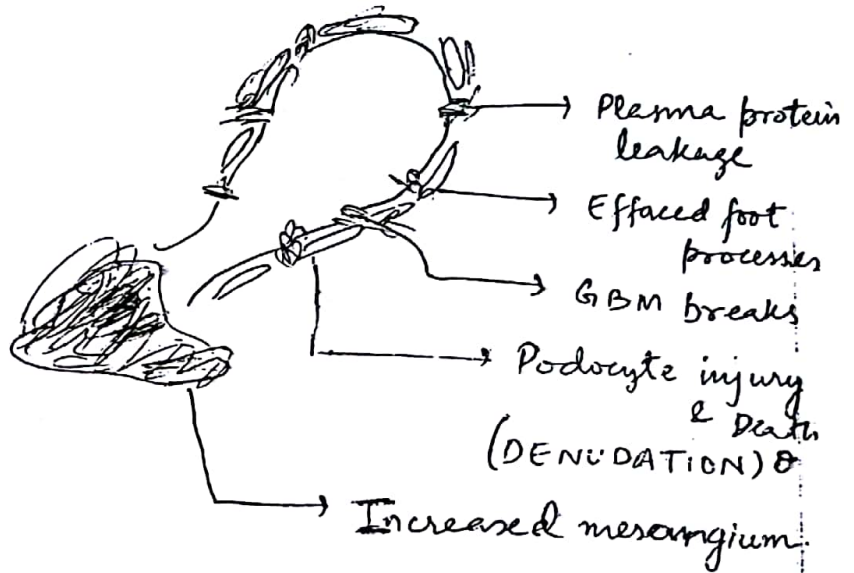 Plasma protein
leakage
Effaced foot
processes
GBM breaks
Podocyte injury
& Death
(DENUDATION)
Increased mesangium.